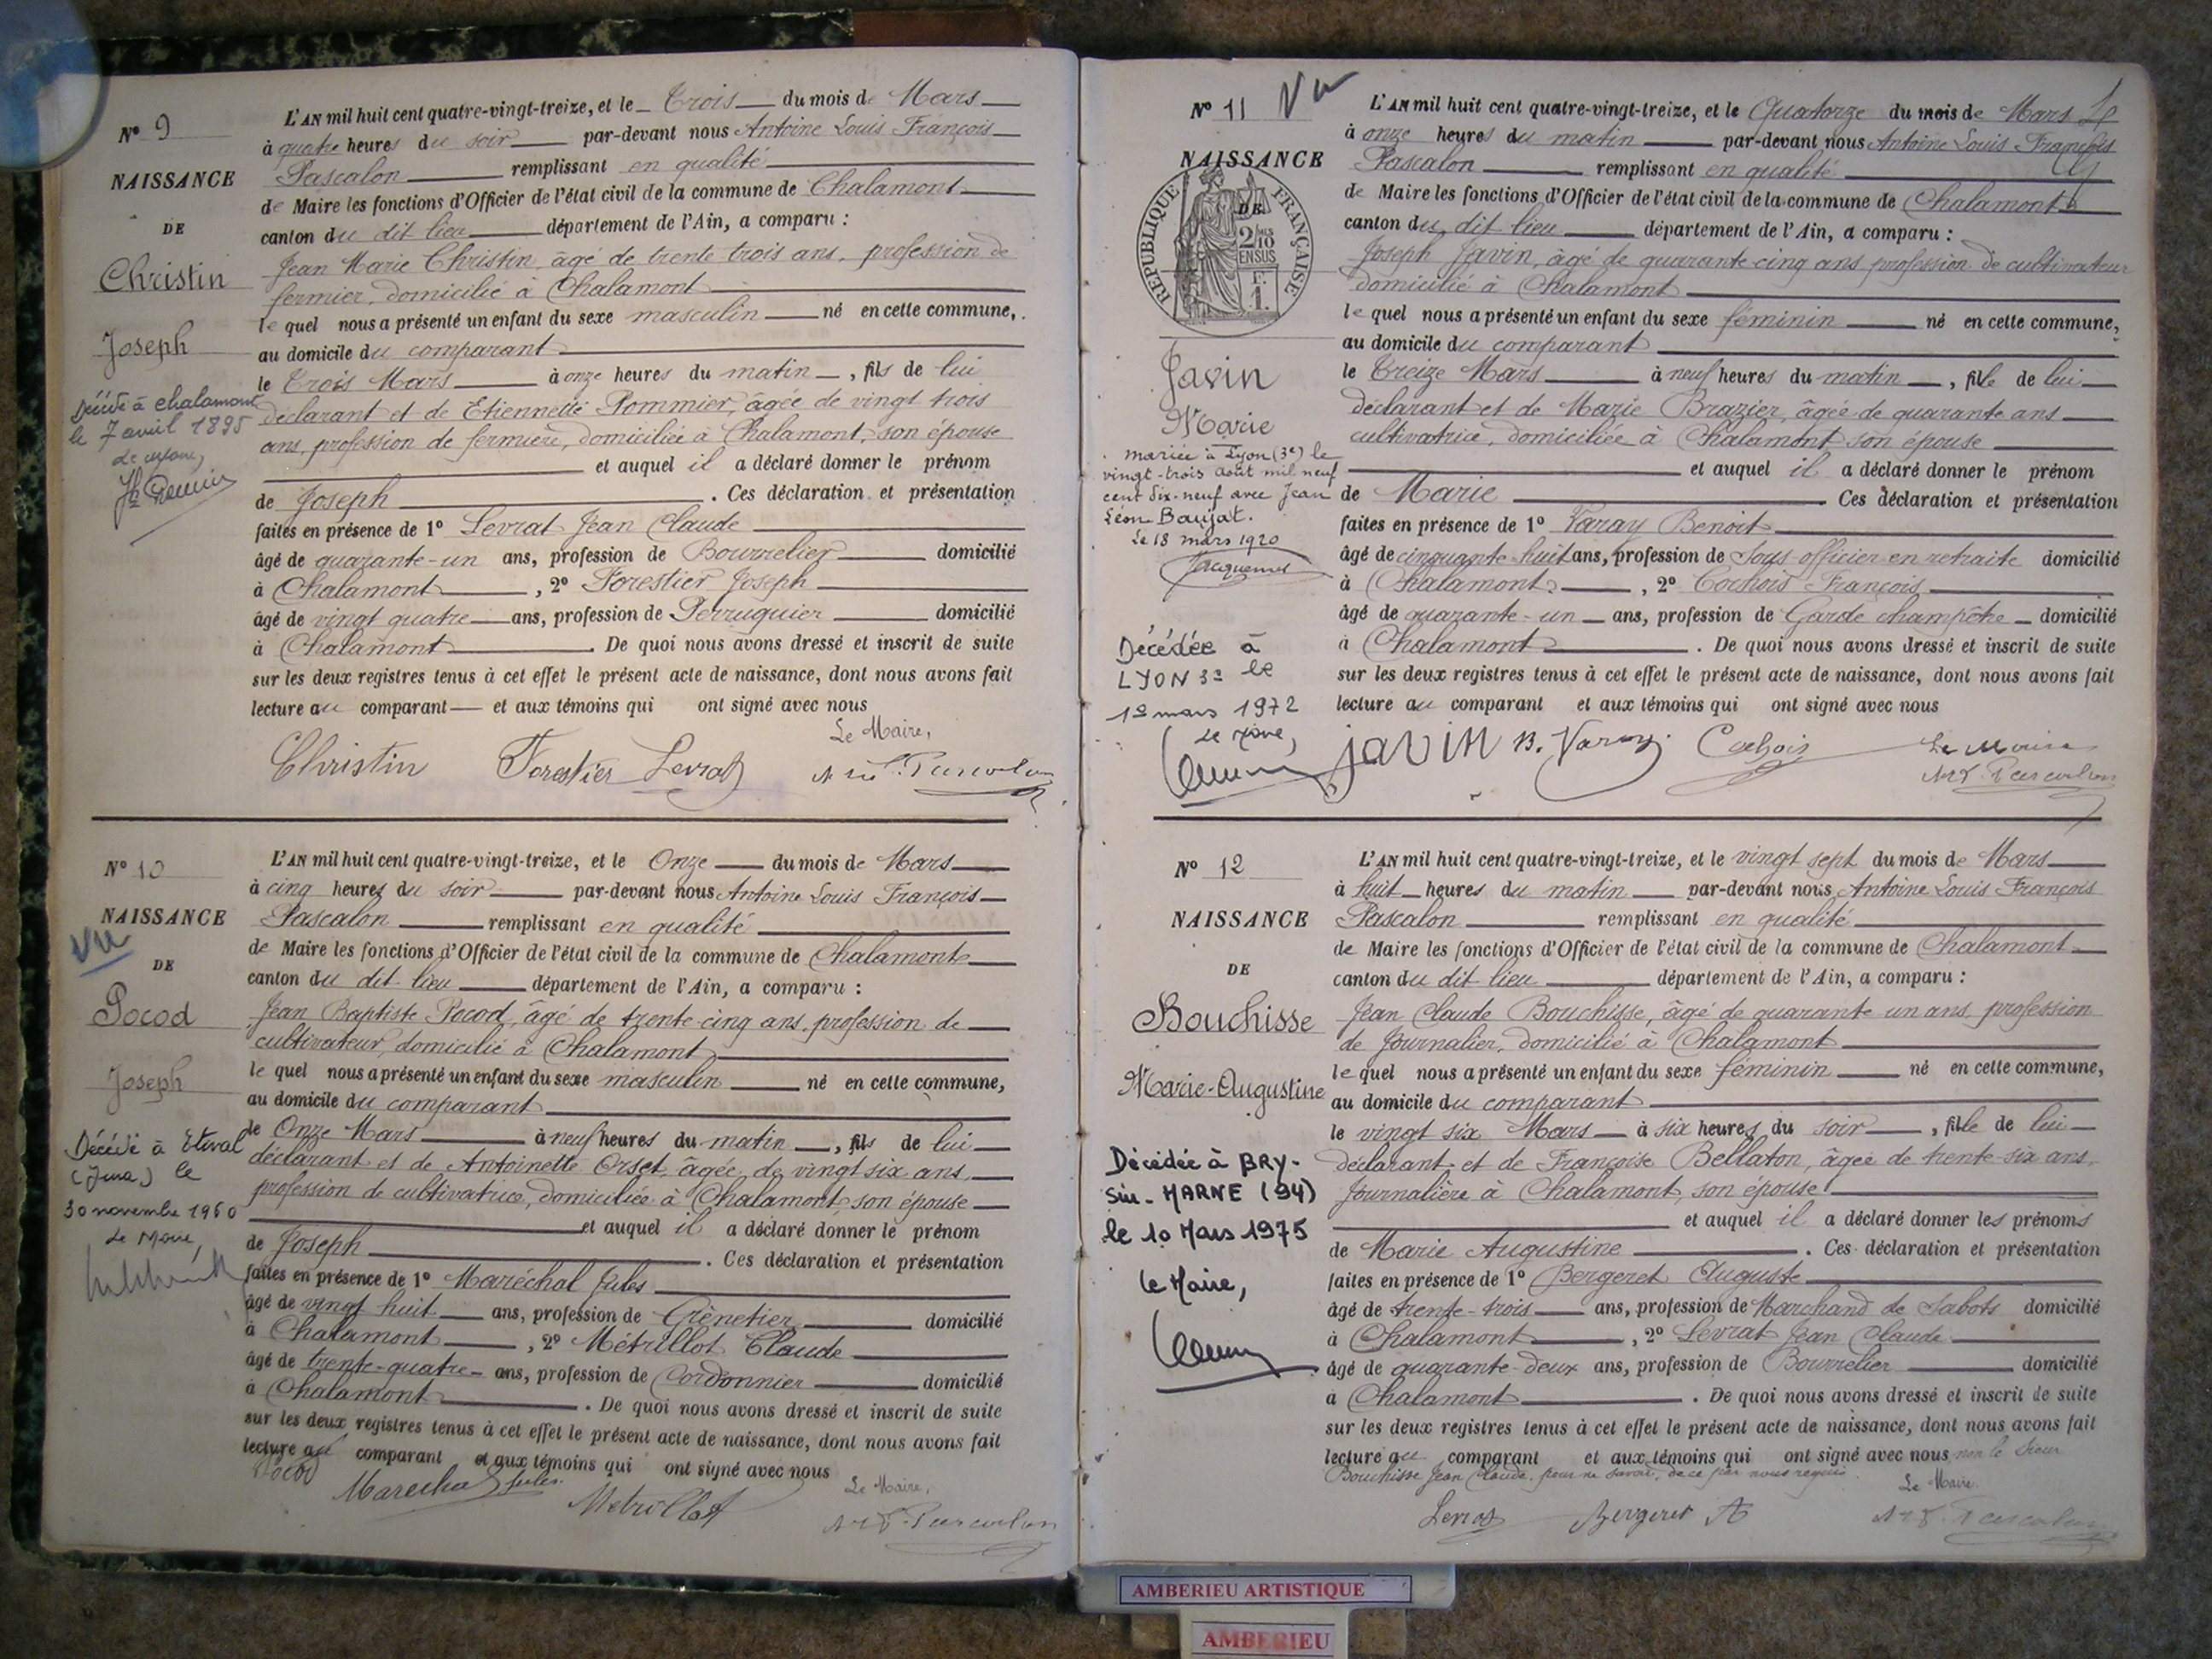 N° 9
NAISSANCE
DE
Christin
Joseph
Décédé à chalamont
le 7 avril 1895
L'AN mil huit cent quatre-vingt-treize, et le Trois du mois de Mars
à quatre heures du soir par-devant nous Antoine Louis François
Pascalon remplissant en qualité
de Maire les fonctions d'Officier de l'état civil de la commune de Chalamont
canton du dit lieu département de l'Ain, a comparu :
Jean Marie Christin, âgé de trente trois ans, profession de
fermier, domicilié à Chalamont
le quel nous a présenté un enfant du sexe masculin né en cette commune,
au domicile du comparant
le Trois Mars à onze heures du matin, fils de lui
déclarant et de Etiennette Pommier, âgée de vingt trois
ans, profession de fermière, domiciliée à Chalamont, son épouse
et auquel il a déclaré donner le prénom
de Joseph. Ces déclaration et présentation
faites en présence de 1° Levrat Jean Claude
âgé de quarante-un ans, profession de Bourrelier domicilié
à Chalamont, 2° Forestier Joseph
âgé de vingt quatre ans, profession de Perruquier domicilié
à Chalamont. De quoi nous avons dressé et inscrit de suite
sur les deux registres tenus à cet effet le présent acte de naissance, dont nous avons fait
lecture au comparant et aux témoins qui ont signé avec nous
Le Maire,
Christin Forestier Levrat
N° 10
NAISSANCE
vu
DE
Pocod
Joseph
Décédé à Etival
(Jura) le
30 novembre 1960
Le Maire,
L'AN mil huit cent quatre-vingt-treize, et le Onze du mois de Mars
à cinq heures du soir par-devant nous Antoine Louis François
Pascalon remplissant en qualité
de Maire les fonctions d'Officier de l'état civil de la commune de Chalamont
canton du dit lieu département de l'Ain, a comparu :
Jean Baptiste Pocod, âgé de trente-cinq ans, profession de
cultivateur, domicilié à Chalamont
le quel nous a présenté un enfant du sexe masculin né en cette commune,
au domicile du comparant
le Onze Mars à neuf heures du matin, fils de lui
déclarant et de Antoinette Orset, âgée de vingt six ans,
profession de cultivatrice, domiciliée à Chalamont, son épouse
et auquel il a déclaré donner le prénom
de Joseph. Ces déclaration et présentation
faites en présence de 1° Maréchal Jules
âgé de vingt huit ans, profession de Grènetier domicilié
à Chalamont, 2° Métrillot Claude
âgé de trente-quatre ans, profession de Cordonnier domicilié
à Chalamont. De quoi nous avons dressé et inscrit de suite
sur les deux registres tenus à cet effet le présent acte de naissance, dont nous avons fait
lecture au comparant et aux témoins qui ont signé avec nous
Pocod Marechal Jules Metrillot
Le Maire,
N° 11 Vu
NAISSANCE
DE
RÉPUBLIQUE FRANÇAISE
2/10 EN SUS
F.
1.
Javin
Marie
mariée à Lyon (3e) le
vingt-trois août mil neuf
cent dix-neuf avec Jean
Léon Baujat.
Le 18 mars 1920
Jacquemet
Décédée à
LYON 3e le
1e mars 1972
Le Maire,
L'AN mil huit cent quatre-vingt-treize, et le Quatorze du mois de Mars
à onze heures du matin par-devant nous Antoine Louis François
Pascalon remplissant en qualité
de Maire les fonctions d'Officier de l'état civil de la commune de Chalamont
canton du dit lieu département de l'Ain, a comparu :
Joseph Javin, âgé de quarante-cinq ans, profession de cultivateur
domicilié à Chalamont
le quel nous a présenté un enfant du sexe féminin né en cette commune,
au domicile du comparant
le Treize Mars à neuf heures du matin, fille de lui
déclarant et de Marie Brazier, âgée de quarante ans
cultivatrice, domiciliée à Chalamont son épouse
et auquel il a déclaré donner le prénom
de Marie Ces déclaration et présentation
faites en présence de 1° Varay Benoit
âgé de cinquante-huit ans, profession de Sous officier en retraite domicilié
à Chalamont, 2° Cochois François
âgé de quarante-un ans, profession de Garde champêtre domicilié
à Chalamont. De quoi nous avons dressé et inscrit de suite
sur les deux registres tenus à cet effet le présent acte de naissance, dont nous avons fait
lecture au comparant et aux témoins qui ont signé avec nous
javin B. Varay Cochois Le Maire
N° 12
NAISSANCE
DE
Bouchisse
Marie-Augustine
Décédée à BRY-
sur-MARNE (94)
le 10 Mars 1975
Le Maire,
L'AN mil huit cent quatre-vingt-treize, et le vingt sept du mois de Mars
à huit heures du matin par-devant nous Antoine Louis François
Pascalon remplissant en qualité
de Maire les fonctions d'Officier de l'état civil de la commune de Chalamont
canton du dit lieu département de l'Ain, a comparu :
Jean Claude Bouchisse, âgé de quarante un ans, profession
de Journalier, domicilié à Chalamont
le quel nous a présenté un enfant du sexe féminin né en cette commune,
au domicile du comparant
le vingt six Mars à six heures du soir, fille de lui
déclarant et de Françoise Bellaton, âgée de trente-six ans,
Journalière à Chalamont, son épouse
et auquel il a déclaré donner les prénoms
de Marie Augustine. Ces déclaration et présentation
faites en présence de 1° Bergeret Auguste
âgé de trente-trois ans, profession de Marchand de Sabots domicilié
à Chalamont, 2° Levrat Jean Claude
âgé de quarante-deux ans, profession de Bourrelier domicilié
à Chalamont. De quoi nous avons dressé et inscrit de suite
sur les deux registres tenus à cet effet le présent acte de naissance, dont nous avons fait
lecture au comparant et aux témoins qui ont signé avec nous non le sieur
Bouchisse Jean Claude, pour ne savoir, de ce par nous requis.
Le Maire
Levrat Bergeret A
AMBERIEU ARTISTIQUE
AMBERIEU